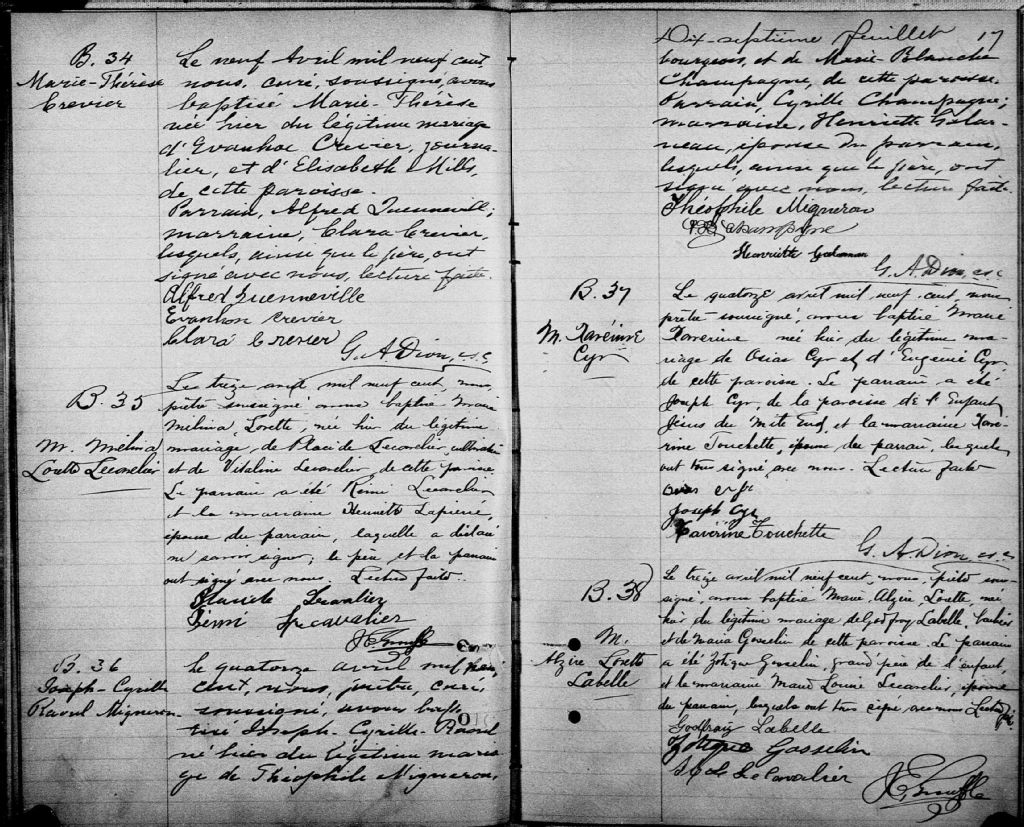 B. 34
Marie-Thérèse
Crevier
Le neuf Avril mil neuf cent
nous, curé, soussigné, avons
baptisé Marie-Thérèse
née hier du légitime mariage
d'Evanhoe Crevier, journa-
lier, et d'Elisabeth Mills,
de cette paroisse.
Parrain, Alfred Quenneville;
marraine, Clara Crevier,
lesquels, ainsi que le père, ont
signé avec nous, lecture faite.
Alfred Quenneville
Evanhoe Crevier
Clara Crevier
G. A. Dion, p.c.
B. 35
M. Mélina
Lorette Lecavelier
Le treize avril mil neuf cent, nous,
prêtre soussigné avons baptisé Marie
Mélina, Lorette, née hier du légitime
mariage, de Placide Lecavelier, cultivateur
et de Vitaline Lecavelier, de cette paroisse.
Le parrain a été Rémi Lecavelier
et la marraine Henriette Lapierre,
épouse du parrain, laquelle a déclaré
ne savoir signer; le père et le parrain
ont signé avec nous. Lecture faite.
Lecavalier
Lecavalier
B. 36
Joseph-Cyrille
Raoul Migneron
Le quatorze avril mil neuf
cent, nous, prêtre, curé,
soussigné, avons bap-
tisé Joseph-Cyrille-Raoul
né hier du légitime maria-
ge de Théophile Migneron,
Dix-septième feuillet 17
bourgeois, et de Marie-Blanche
Champagne, de cette paroisse.
Parrain, Cyrille Champagne;
marraine, Henriette Galar-
neau, épouse du parrain,
lesquels, ainsi que le père, ont
signé avec nous, lecture faite.
Théophile Migneron
Champagne
Henriette
G. A. Dion, p.c.
B. 37
M. Xavérine
Cyr
Le quatorze avril mil neuf cent, nous
prêtre soussigné, avons baptisé Marie
Xavérine née hier du légitime ma-
riage de Osias Cyr et d'Eugénie Cyr,
de cette paroisse. Le parrain a été
Joseph Cyr, de la paroisse de l'Enfant
Jésus du Mile End, et la marraine Xavé-
rine Touchette, épouse du parrain, lesquels
ont tous signé avec nous. Lecture faite
Joseph Cyr
Xavérine Touchette
G. A. Dion, p.c.
B. 38
M.
Alzire Lorette
Labelle
Le treize avril mil neuf cent, nous, prêtre sous-
signé, avons baptisé Marie, Alzire, Lorette, née
hier du légitime mariage de Godfroy Labelle,
et de Maria Gosselin de cette paroisse. Le parrain
a été Zotique Gosselin, grand père de l'enfant,
et la marraine Marie Louise Lecavelier, épouse
du parrain, lesquels ont tous signé avec nous. Lecture f.
Godfroy Labelle
Zotique Gosselin
Lecavalier